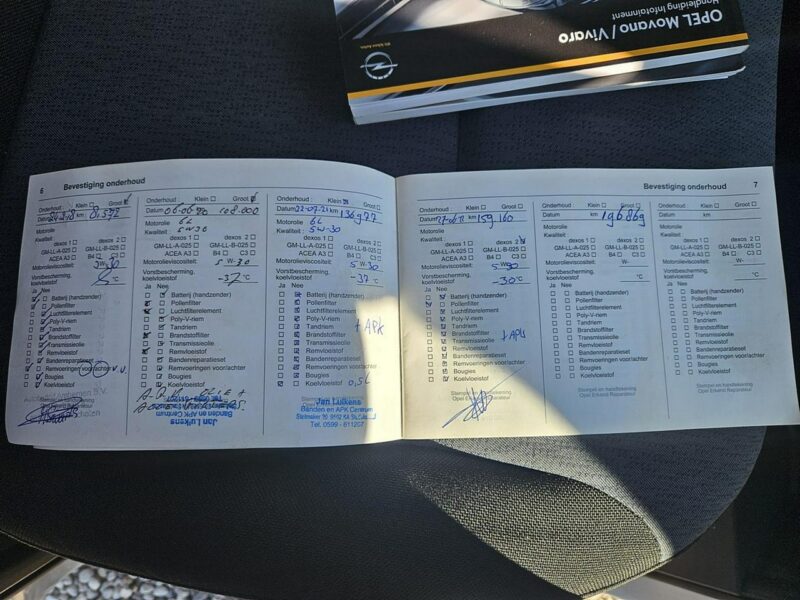 OPEL Movano / Vivaro
Handleiding Infotainment
Wir leben Autos.
6 Bevestiging onderhoud
Onderhoud : Klein Groot
Datum km
Motorolie
Kwaliteit :
dexos 1 dexos 2
GM-LL-A-025 GM-LL-B-025
ACEA A3 B4 C3
Motorolieviscositeit:
5W30
Vorstbescherming,
koelvloeistof °C
Ja Nee
Batterij (handzender)
Pollenfilter
Luchtfilterelement
Poly-V-riem
Tandriem
Brandstoffilter
Transmissieolie
Remvloeistof
Bandenreparatieset
Remvoeringen voor/achter
Bougies
Koelvloeistof
Onderhoud : Klein Groot
Datum 06-06-20 108.000
Motorolie 6L
Kwaliteit : 5W30
dexos 1 dexos 2
GM-LL-A-025 GM-LL-B-025
ACEA A3 B4 C3
Motorolieviscositeit:
5 W-30
Vorstbescherming,
koelvloeistof -37 °C
Ja Nee
Batterij (handzender)
Pollenfilter
Luchtfilterelement
Poly-V-riem
Tandriem
Brandstoffilter
Transmissieolie
Remvloeistof
Bandenreparatieset
Remvoeringen voor/achter
Bougies
Koelvloeistof
Jan Luikens
Banden en APK Centrum
Onderhoud : Klein Groot
Datum 22-07-21 km 136977
Motorolie 6L
Kwaliteit : 5W-30
dexos 1 dexos 2
GM-LL-A-025 GM-LL-B-025
ACEA A3 B4 C3
Motorolieviscositeit:
5 W-30
Vorstbescherming,
koelvloeistof -37 °C
Ja Nee
Batterij (handzender)
Pollenfilter
Luchtfilterelement
Poly-V-riem
Tandriem + APK
Brandstoffilter
Transmissieolie
Remvloeistof
Bandenreparatieset
Remvoeringen voor/achter
Bougies
Koelvloeistof 0,5L
Jan Luikens
Banden en APK Centrum
Tel. 0599 - 611207
Bevestiging onderhoud 7
Onderhoud : Klein Groot
Datum km 159160
Motorolie
Kwaliteit :
dexos 1 dexos 2
GM-LL-A-025 GM-LL-B-025
ACEA A3 B4 C3
Motorolieviscositeit:
5 W-30
Vorstbescherming,
koelvloeistof -30 °C
Ja Nee
Batterij (handzender)
Pollenfilter
Luchtfilterelement
Poly-V-riem
Tandriem
Brandstoffilter + APK
Transmissieolie
Remvloeistof
Bandenreparatieset
Remvoeringen voor/achter
Bougies
Koelvloeistof
Stempel en handtekening
Opel Erkend Reparateur
Onderhoud : Klein Groot
Datum km 196869
Motorolie
Kwaliteit :
dexos 1 dexos 2
GM-LL-A-025 GM-LL-B-025
ACEA A3 B4 C3
Motorolieviscositeit:
W-
Vorstbescherming,
koelvloeistof °C
Ja Nee
Batterij (handzender)
Pollenfilter
Luchtfilterelement
Poly-V-riem
Tandriem
Brandstoffilter
Transmissieolie
Remvloeistof
Bandenreparatieset
Remvoeringen voor/achter
Bougies
Koelvloeistof
Stempel en handtekening
Opel Erkend Reparateur
Onderhoud : Klein Groot
Datum km
Motorolie
Kwaliteit :
dexos 1 dexos 2
GM-LL-A-025 GM-LL-B-025
ACEA A3 B4 C3
Motorolieviscositeit:
W-
Vorstbescherming,
koelvloeistof °C
Ja Nee
Batterij (handzender)
Pollenfilter
Luchtfilterelement
Poly-V-riem
Tandriem
Brandstoffilter
Transmissieolie
Remvloeistof
Bandenreparatieset
Remvoeringen voor/achter
Bougies
Koelvloeistof
Stempel en handtekening
Opel Erkend Reparateur